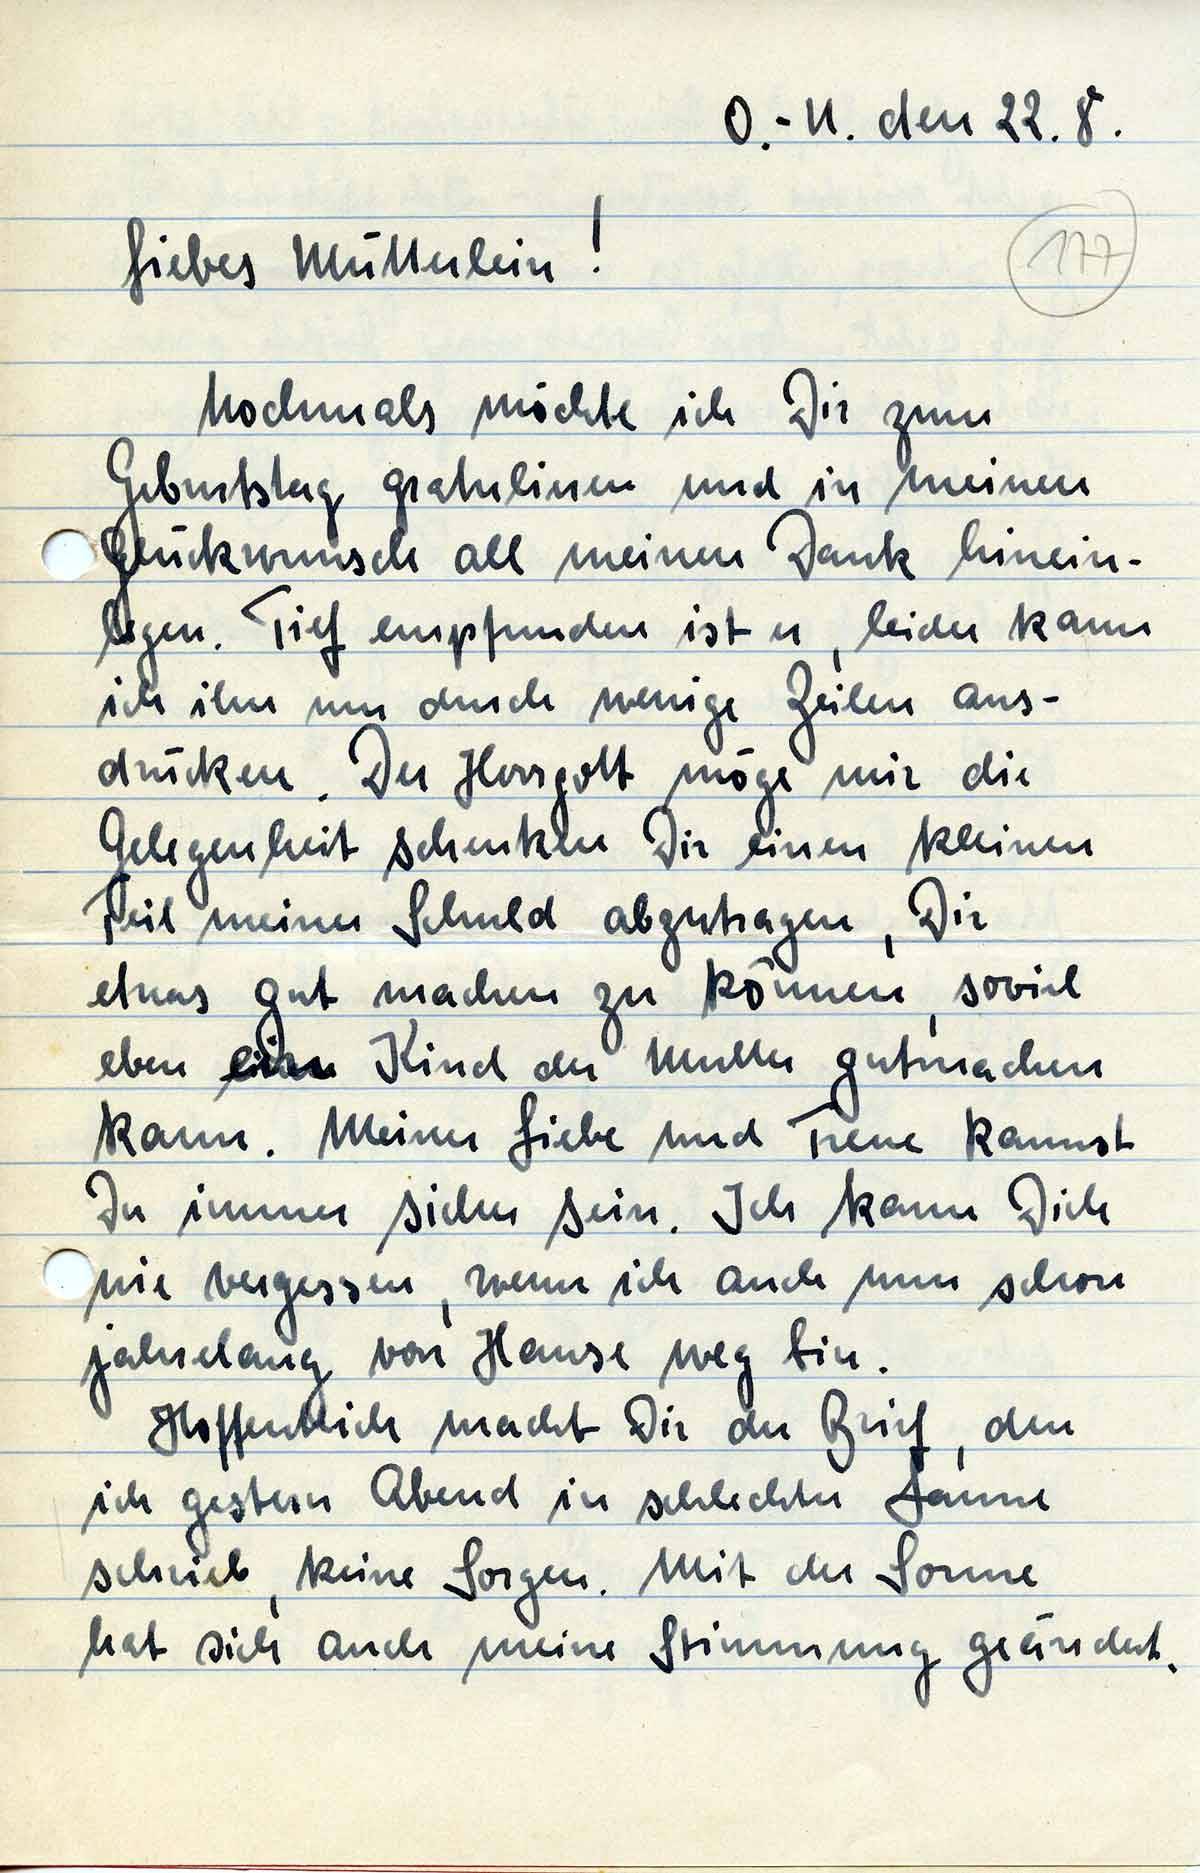 O.-U. den 22. 8.
177
Liebes Mütterlein!
Nochmals möchte ich Dir zum
Geburtstag gratulieren und in meinen
Glückwunsch all meinen Dank hinein-
legen. Tief empfunden ist er, leider kann
ich ihn nur durch wenige Zeilen aus-
drücken. Der Herrgott möge mir die
Gelegenheit schenken Dir einen kleinen
Teil meiner Schuld abzutragen, Dir
etwas gut machen zu können, soviel
eben ein Kind der Mutter gutmachen
kann. Meiner Liebe und Treue kannst
Du immer sicher sein. Ich kann Dich
nie vergessen, wenn ich auch nun schon
jahrelang von Hause weg bin.
Hoffentlich macht Dir der Brief, den
ich gestern Abend in schlechter Laune
schrieb, keine Sorgen. Mit der Sonne
hat sich auch meine Stimmung geändert.